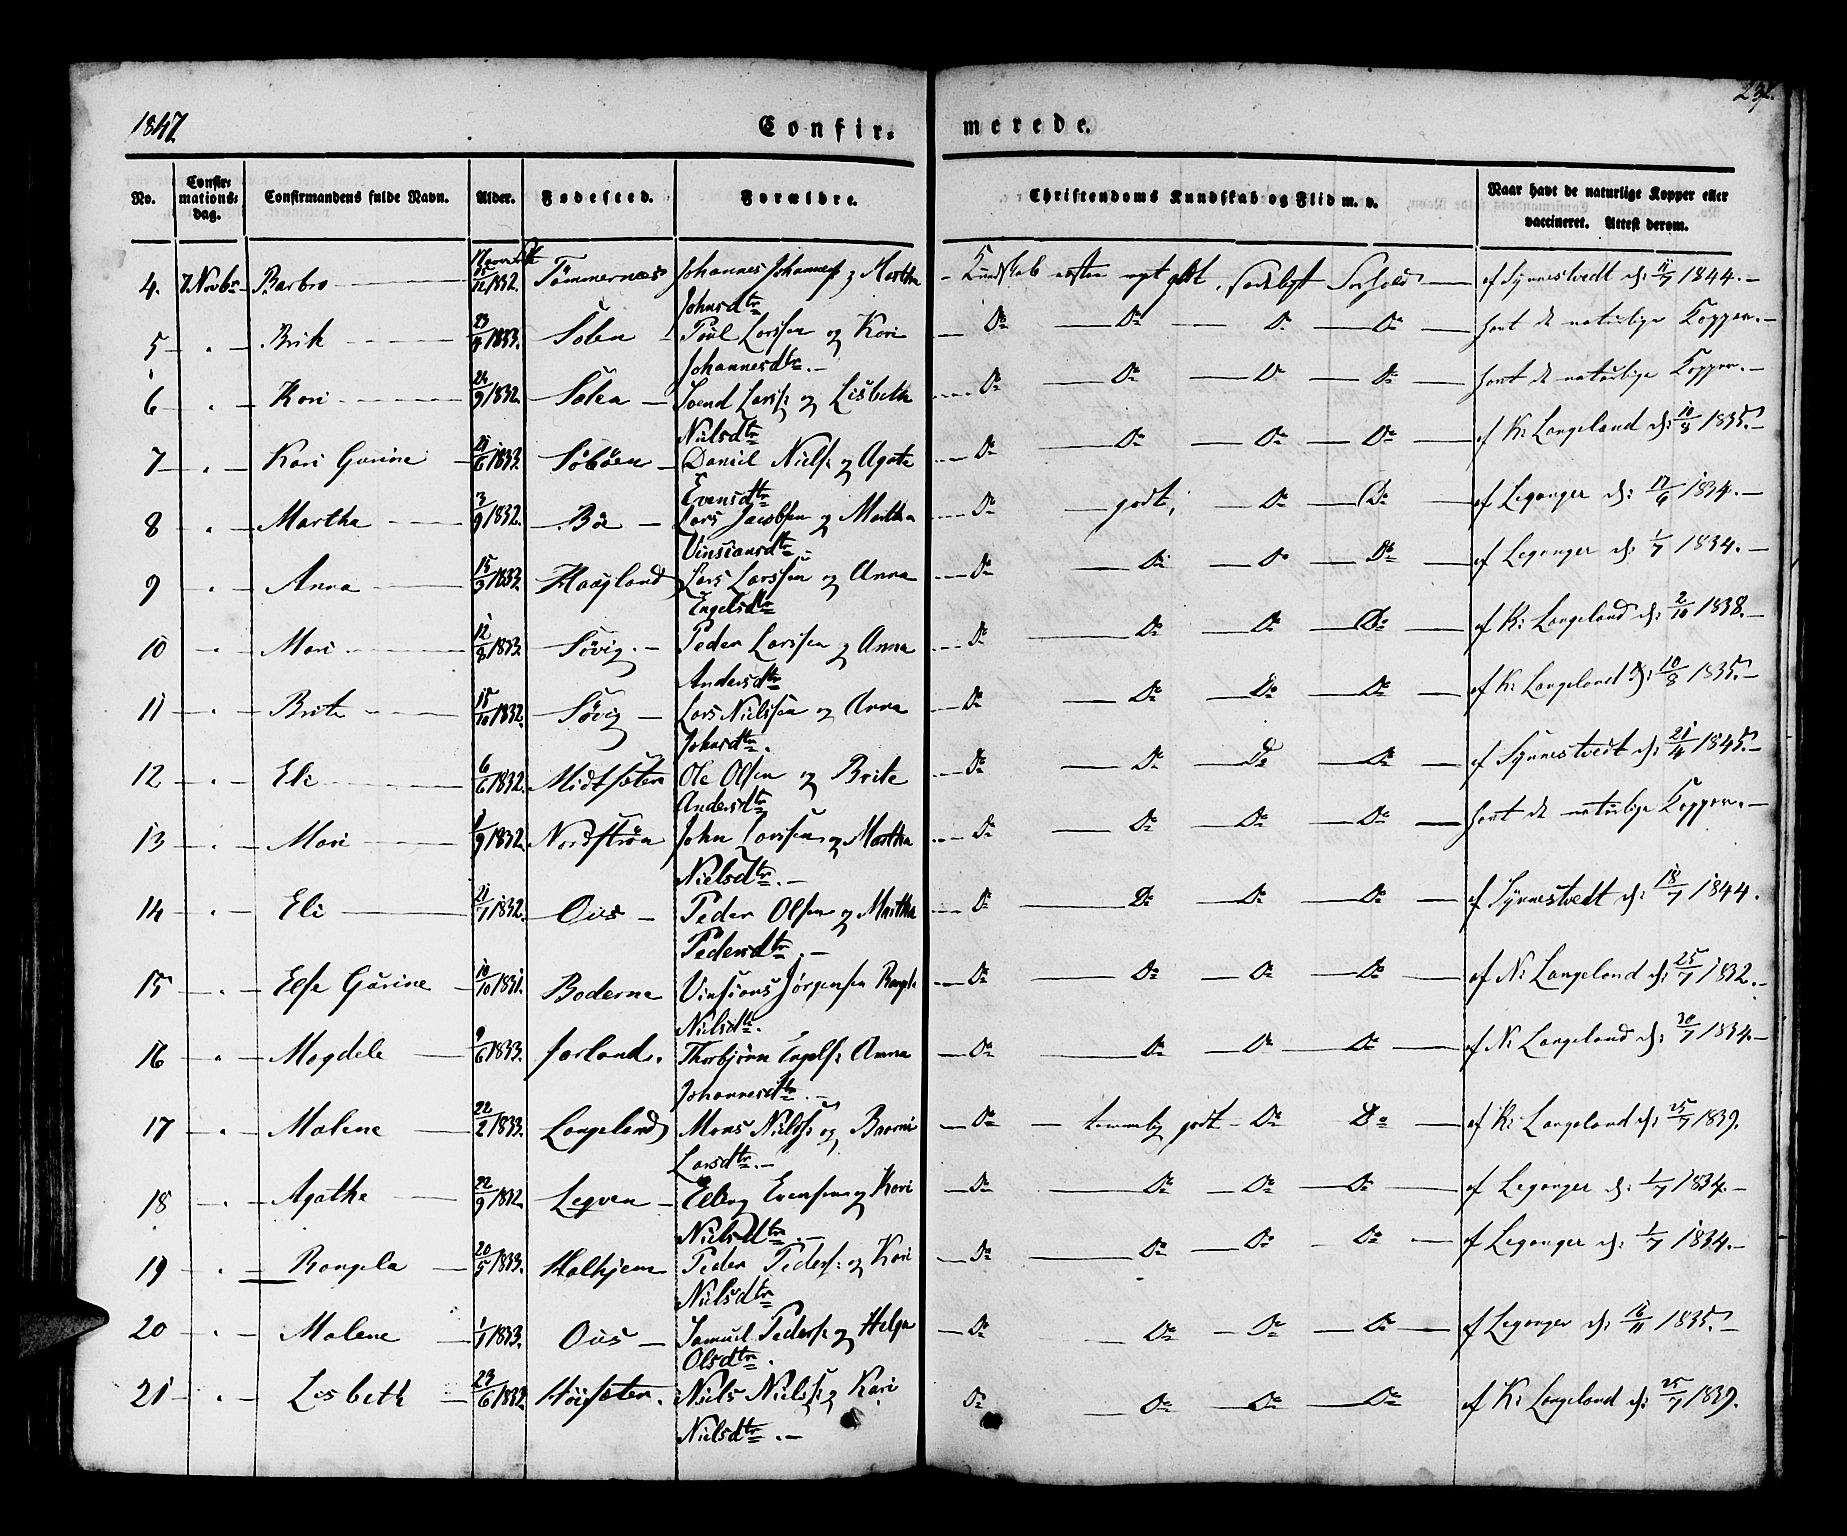 1847
Confir=
merede.
232.
No.
Confir=
mations=
dag.
Confirmandens fulde Navn.
Alder.
Fødested.
Forældre.
Christendoms Kundskab og Flid m. v.
Naar havt de naturlige Kopper eller
vaccineret. Attest derom.
4. 7 Novbr Barbro 15/12 1832. Tømmernæs Johannes Johannes: og Martha Kundskab næsten godt, sædeligt Forhold af Synnestvedt d: 11/7 1844.
Johnsdtr
5 " Brite 23/4 1833. Solen Poul Larssen og Kari Do Do Do Do havt de naturlige Kopper.
Johannesdtr.
6 " Kari 24/9 1832. Solen Svend Larss: og Lisbeth Do Do Do Do havt de naturlige Kopper.
Nielsdtr
7 " Kari Gurine 21/6 1833. Søbøen Daniel Niels: og Agate Do Do Do Do af K: Langeland d: 10/8 1835.
Evensdtr
8 " Martha 3/9 1832. Bø Lars Jacobsen og Martha Do godt, Do Do af Leganger d: 17/6 1834.
Vinsiansdtr
9 " Anna 15/3 1833. Haagland Lars Larssen og Anna Do Do Do Do af Leganger d: 1/7 1834.
Engelsdtr
10 " Mari 12/8 1833. Søvig. Peder Larssen og Anna Do Do Do Do af K: Langeland d: 2/10 1838.
Andersdtr
11 " Brite 15/10 1832. Søvig Lars Nielssen og Anna Do Do Do Do af K: Langeland d: 10/8 1835.
Johnsdtr.
12 " Eli 6/6 1832. Midtsæter Ole Olsen og Brite Do Do Do Do af Synnestvedt d: 21/4 1845.
Andersdtr
13 " Mari 1/9 1832. Nordstrøn John Larssen og Martha Do Do Do Do havt de naturlige Kopper.
Nielsdtr.
14 " Eli 21/7 1832. Ous Peder Olsen og Martha Do Do Do Do af Synnestvedt d: 18/7 1844.
Pedersdtr.
15 " Else Gurine 10/10 1831. Boderne Vinsians Jørgensen Do Do Do Do af N: Langeland d: 25/7 1832.
Nielsdtr.
16 " Magdele 9/6 1833. Jarland. Thorbjørn Engels: Anna Do Do Do Do af N: Langeland d: 30/7 1834.
Johannesdtr.
17 " Malene 22/2 1833. Langeland Mons Nielss: og Do temmelig godt Do Do af K: Langeland d: 25/7 1839.
Larsdtr.
18 " Agathe 22/9 1832. Legven Elling Evensen og Kari Do Do Do Do af Leganger d: 1/7 1834.
Nielsdtr.
19 " Rangela 20/5 1833. Halhjem Peder Peders: og Kari Do Do Do Do af Leganger d: 1/7 1834.
Nielsdtr
20 " Malene 1/1 1833. Ous Samuel Peders: og Helga Do Do Do Do af Leganger d: 16/11 1835.
Olsdtr.
21 " Lisbeth 23/6 1832. Høisæter. Niels Nielss: og Kari Do Do Do Do af K: Langeland d: 25/7 1839.
Nielsdtr.